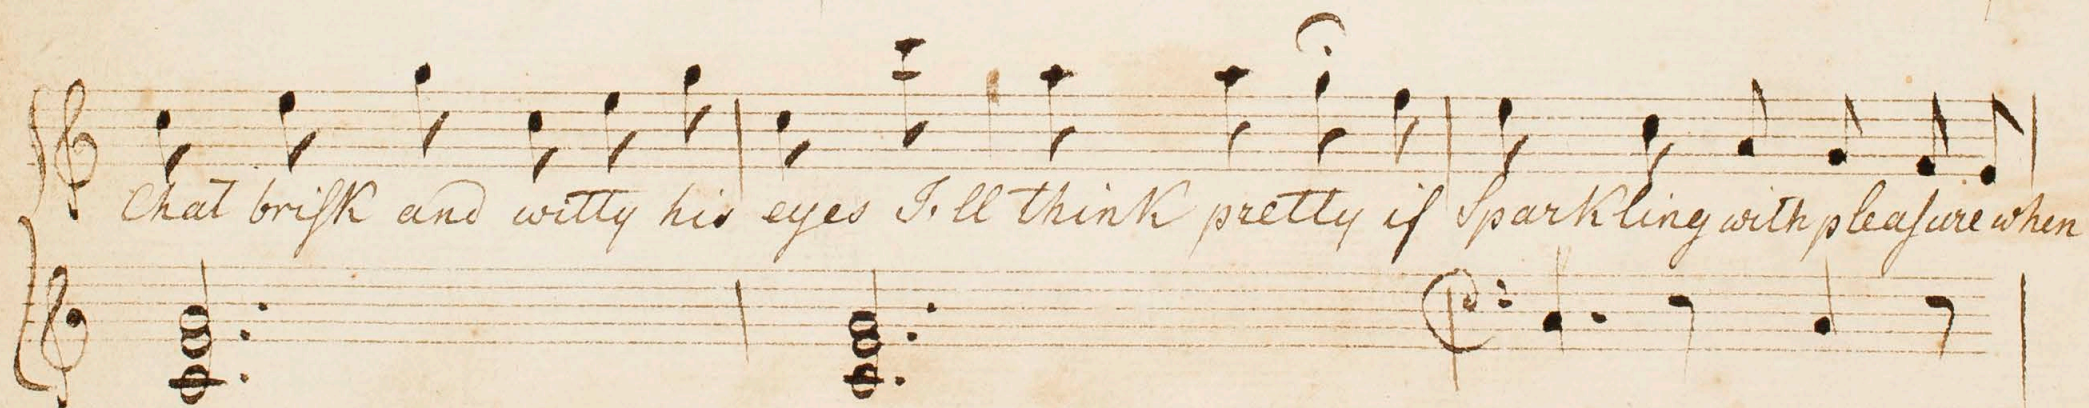 Chat briſk and witty his eyes I.ll think pretty if Sparkling with pleaſure when